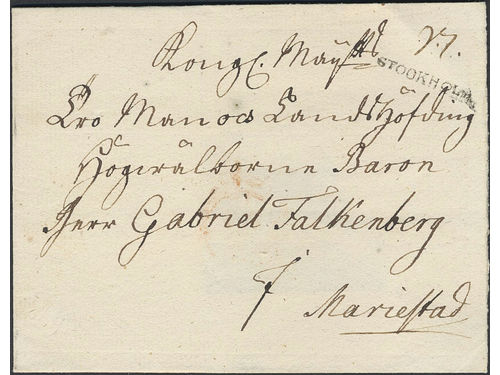 Kongl. Maÿttz
STOCKHOLM
Tro Man och LandsHöfding
Högwälborne Baron
Herr Gabriel Falkenberg
Mariestad